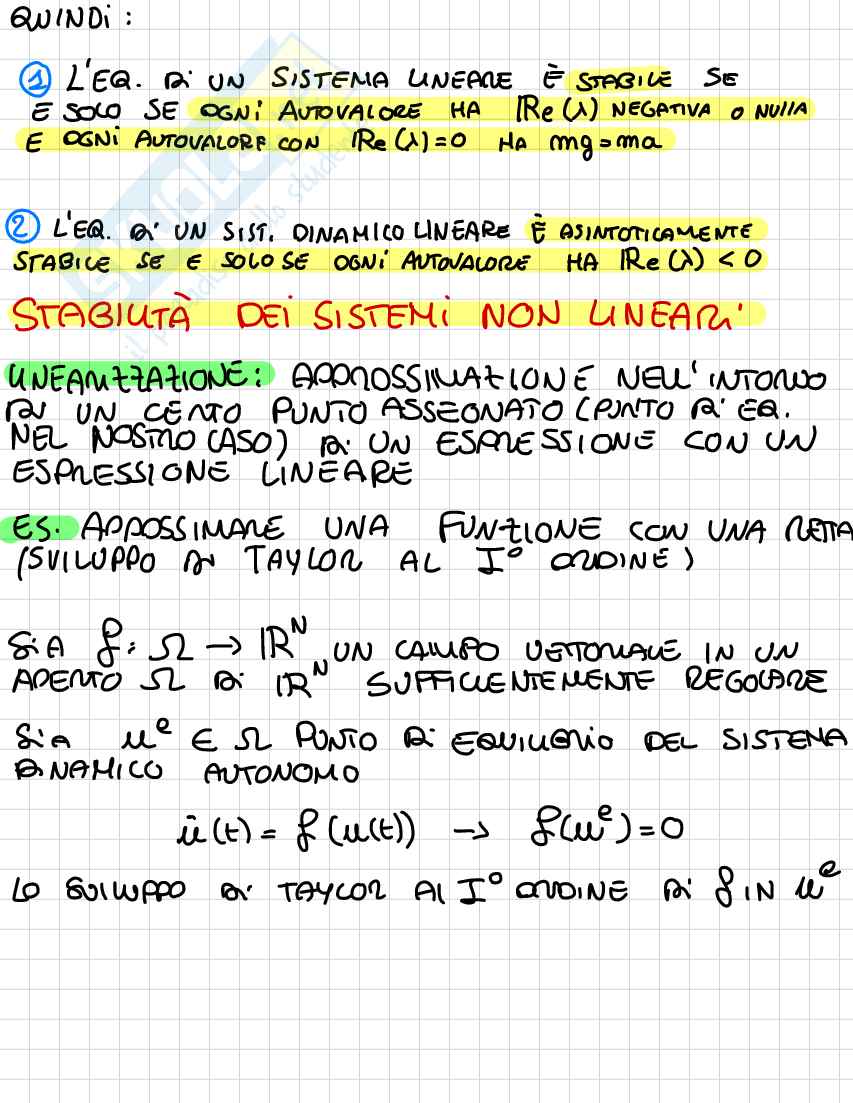 QUINDI:
① L'EQ. DI UN SISTEMA LINEARE È STABILE SE
E SOLO SE OGNI AUTOVALORE HA IRe(λ) NEGATIVA O NULLA
E OGNI AUTOVALORE CON IRe(λ)=0 HA mg=ma
② L'EQ. DI UN SIST. DINAMICO LINEARE È ASINTOTICAMENTE
STABILE SE E SOLO SE OGNI AUTOVALORE HA IRe(λ)<0
STABILITÀ DEI SISTEMI NON LINEARI
LINEARIZZAZIONE: APPROSSIMAZIONE NELL'INTORNO
DI UN CERTO PUNTO ASSEGNATO (PUNTO DI EQ.
NEL NOSTRO CASO) DI UN ESPRESSIONE CON UN
ESPRESSIONE LINEARE
ES. APPROSSIMARE UNA FUNZIONE CON UNA RETTA
(SVILUPPO DI TAYLOR AL I° ORDINE)
SIA f: Ω → IRᴺ UN CAMPO VETTORIALE IN UN
APERTO Ω DI IRᴺ SUFFICIENTEMENTE REGOLARE
SIA uᵉ ∈ Ω PUNTO DI EQUILIBRIO DEL SISTEMA
DINAMICO AUTONOMO
u̇(t) = f(u(t)) → f(uᵉ)=0
LO SVILUPPO DI TAYLOR AL I° ORDINE DI f IN uᵉ